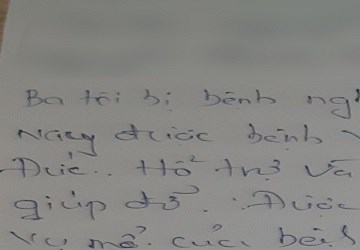 Ba tôi bị bệnh ngh
Nay được bệnh v
Đức.. Hỗ trợ và
giúp đỡ. Được
vụ mổ. của bệ